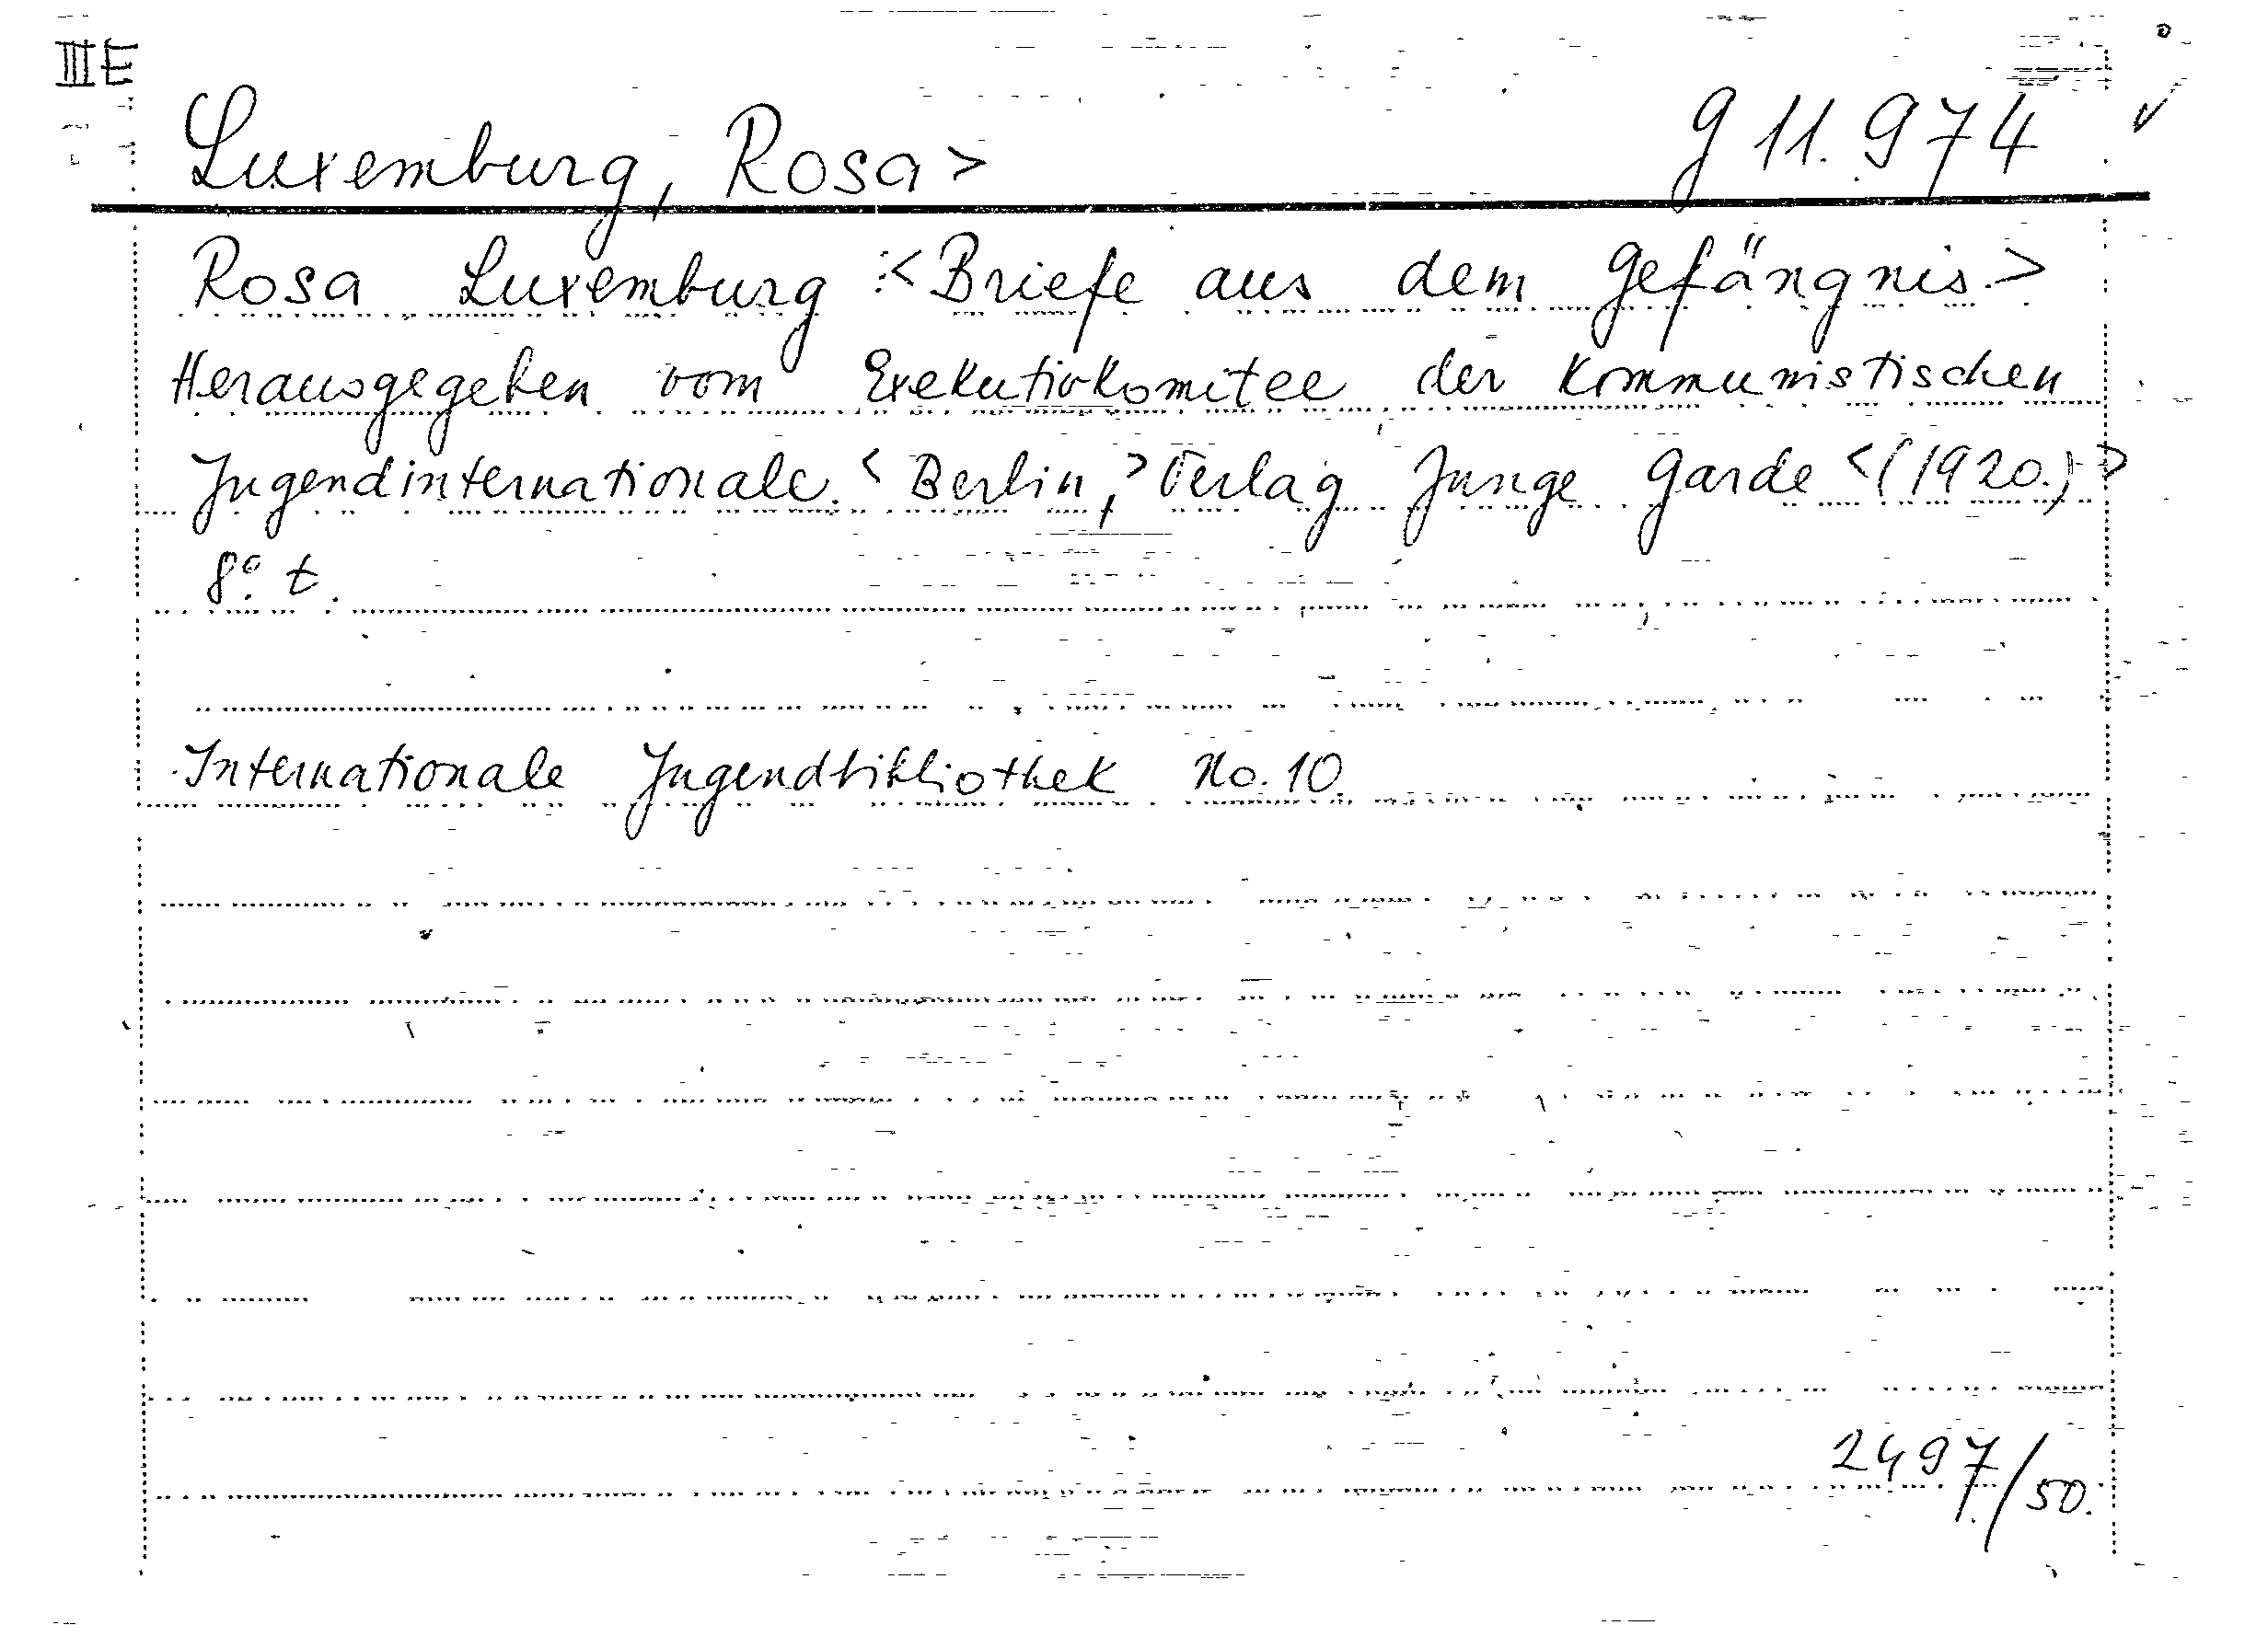 III E
Luxemburg, Rosa> g 11.974
Rosa Luxemburg :<Briefe aus dem Gefängnis.>
Herausgegeben vom Exekutivkomitee der Kommunistischen
Jugendinternationale. <Berlin,> Verlag Junge Garde <(1920.)>
8° t.
Internationale Jugendbibliothek No. 10.
2497/50.